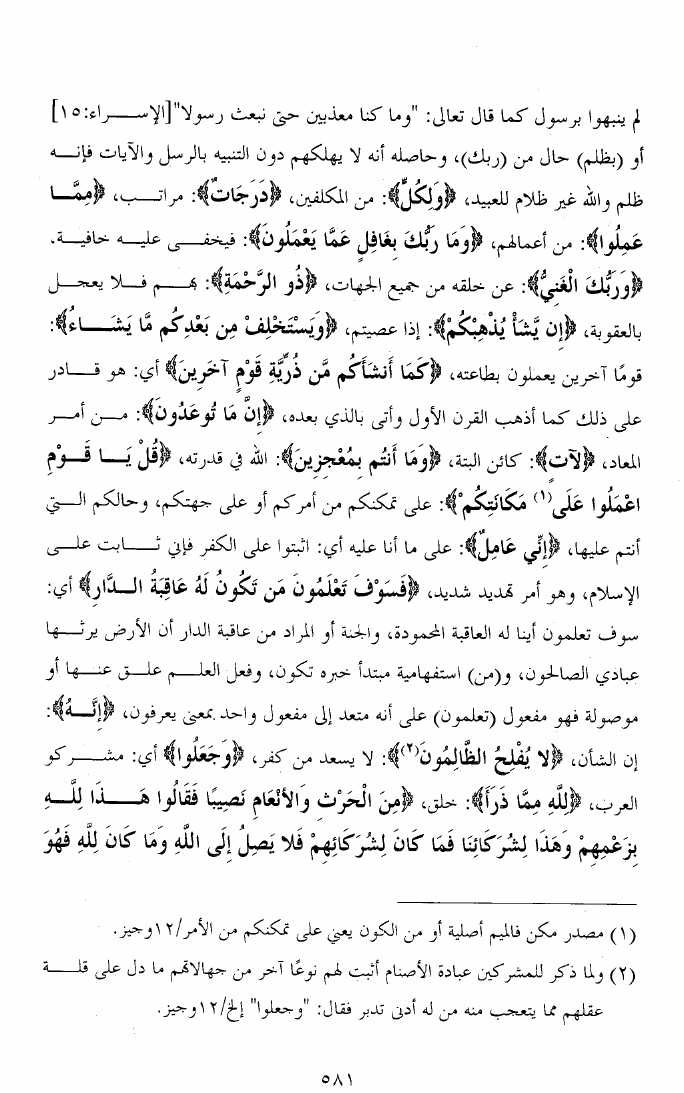 لم ينبهوا برسول كما قال تعالى: "وما كنا معذبين حتى نبعث رسولا"[الإسراء:١٥]
أو (بظلم) حال من (ربك)، وحاصله أنه لا يهلكهم دون التنبيه بالرسل والآيات فإنه
ظلم والله غير ظلام للعبيد، ﴿وَلِكُلٍّ﴾: من المكلفين، ﴿دَرَجَاتٌ﴾: مراتب، ﴿مِمَّا
عَمِلُوا﴾: من أعمالهم، ﴿وَمَا رَبُّكَ بِغَافِلٍ عَمَّا يَعْمَلُونَ﴾: فيخفى عليه خافية.
﴿وَرَبُّكَ الْغَنِيُّ﴾: عن خلقه من جميع الجهات، ﴿ذُو الرَّحْمَةِ﴾: بهم فلا يعجل
بالعقوبة، ﴿إِن يَّشَأْ يُذْهِبْكُمْ﴾: إذا عصيتم، ﴿وَيَسْتَخْلِفْ مِن بَعْدِكُم مَّا يَشَاءُ﴾:
قومًا آخرين يعملون بطاعته، ﴿كَمَا أَنشَأَكُم مَّن ذُرِّيَّةِ قَوْمٍ آخَرِينَ﴾ أي: هو قادر
على ذلك كما أذهب القرن الأول وأتى بالذي بعده، ﴿إِنَّ مَا تُوعَدُونَ﴾: من أمر
المعاد، ﴿لآتٍ﴾: كائن البتة، ﴿وَمَا أَنتُم بِمُعْجِزِينَ﴾: الله في قدرته، ﴿قُلْ يَا قَوْمِ
اعْمَلُوا عَلَى(١) مَكَانَتِكُمْ﴾: على تمكنكم من أمركم أو على جهتكم، وحالكم التي
أنتم عليها، ﴿إِنِّي عَامِلٌ﴾: على ما أنا عليه أي: اثبتوا على الكفر فإني ثابت على
الإسلام، وهو أمر تهديد شديد، ﴿فَسَوْفَ تَعْلَمُونَ مَن تَكُونُ لَهُ عَاقِبَةُ الدَّارِ﴾ أي:
سوف تعلمون أينا له العاقبة المحمودة، والجنة أو المراد من عاقبة الدار أن الأرض يرثها
عبادي الصالحون، و(من) استفهامية مبتدأ خبره تكون، وفعل العلم علق عنها أو
موصولة فهو مفعول (تعلمون) على أنه متعد إلى مفعول واحد بمعنى يعرفون، ﴿إِنَّهُ﴾:
إن الشأن، ﴿لا يُفْلِحُ الظَّالِمُونَ(٢)﴾: لا يسعد من كفر، ﴿وَجَعَلُوا﴾ أي: مشركو
العرب، ﴿لِلَّهِ مِمَّا ذَرَأَ﴾: خلق، ﴿مِنَ الْحَرْثِ وَالأَنْعَامِ نَصِيبًا فَقَالُوا هَذَا لِلَّهِ
بِزَعْمِهِمْ وَهَذَا لِشُرَكَائِنَا فَمَا كَانَ لِشُرَكَائِهِمْ فَلا يَصِلُ إِلَى اللَّهِ وَمَا كَانَ لِلَّهِ فَهُوَ
(١) مصدر مكن فالميم أصلية أو من الكون يعني على تمكنكم من الأمر/١٢وجيز.
(٢) ولما ذكر للمشركين عبادة الأصنام أثبت لهم نوعًا آخر من جهالاتهم ما دل على قلة
عقلهم مما يتعجب منه من له أدنى تدبر فقال: "وجعلوا" إلخ/١٢وجيز.
٥٨١